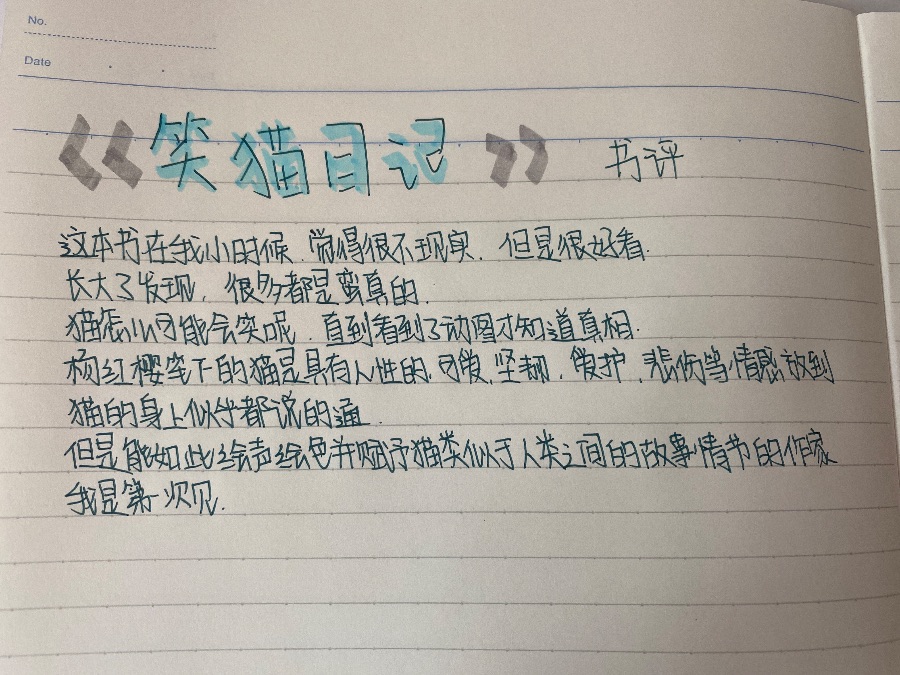 No.
Date
《笑猫日记》 书评
这本书在我小时候.觉得很不现实.但是很好看.
长大了发现,很多都是蛮真的.
猫怎么可能会笑呢.直到看到了动图才知道真相.
杨红樱笔下的猫是具有人性的.可爱.坚韧.爱护.悲伤等情感放到
猫的身上似乎都说的通.
但是能如此绘声绘色并赋予猫类似于人类之间的故事情节的作家
我是第一次见.